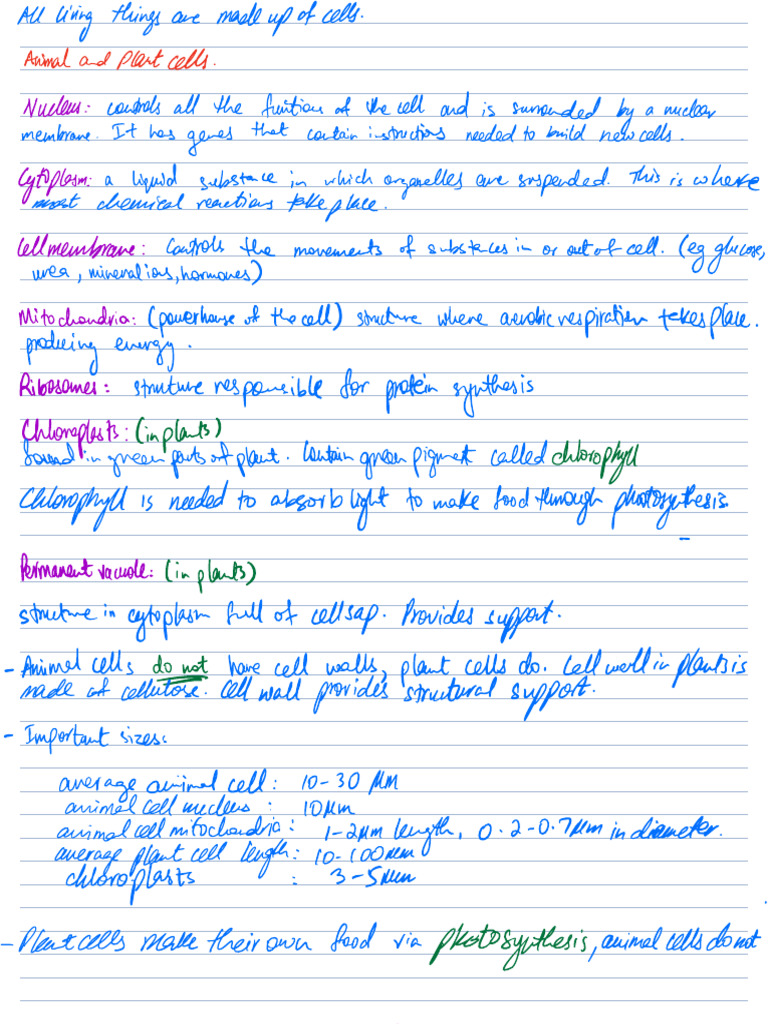 All living things are made up of cells.
Animal and Plant cells.
Nucleus: controls all the functions of the cell and is surrounded by a nuclear
membrane. It has genes that contain instructions needed to build new cells.
Cytoplasm: a liquid substance in which organelles are suspended. This is where
most chemical reactions take place.
Cell membrane: Controls the movements of substances in or out of cell. (eg glucose,
urea, mineral ions, hormones)
Mitochondria: (powerhouse of the cell) structure where aerobic respiration takes place.
producing energy.
Ribosomes: structure responsible for protein synthesis
Chloroplasts: (in plants)
found in green parts of plant. Contain green pigment called chlorophyll
Chlorophyll is needed to absorb light to make food through photosynthesis.
Permanent vacuole: (in plants)
structure in cytoplasm full of cell sap. Provides support.
- Animal cells do not have cell walls, plant cells do. Cell wall in plants is
made of cellulose. Cell wall provides structural support.
- Important sizes:
average animal cell: 10-30 µm
animal cell nucleus: 10µm
animal cell mitochondria: 1-2µm length, 0.2-0.7µm in diameter.
average plant cell length: 10-100µm
chloroplasts : 3-5µm
- Plant cells make their own food via photosynthesis, animal cells do not